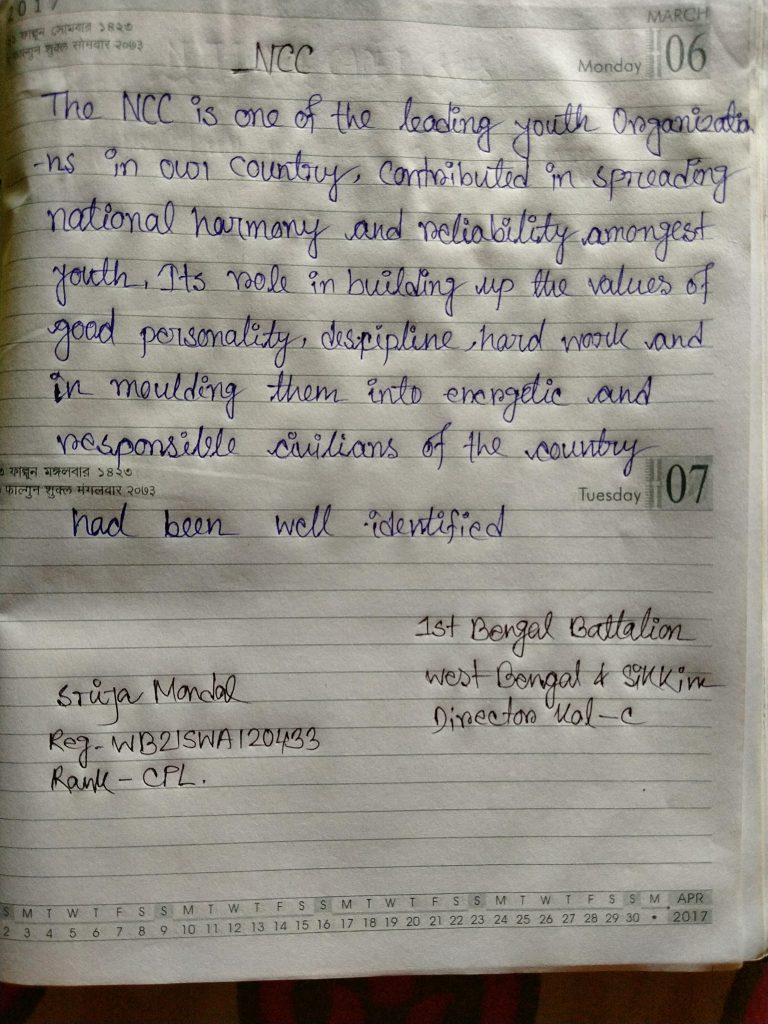 2017
MARCH
ফাল্গুন সোমবার ১৪২৩
फाल्गुन शुक्ल सोमवार २०७३
Monday 06
NCC
The NCC is one of the leading youth Organizatio
-ns in our country, contributed in spreading
national harmony and reliability amongest
youth, Its role in building up the values of
good personality, descipline, hard work and
in moulding them into energetic and
responsible civilians of the country
ফাল্গুন মঙ্গলবার ১৪২৩
फाल्गुन शुक्ल मंगलवार २०७३
Tuesday 07
had been well identified
1st Bengal Battalion
West Bengal & Sikkim
Director Kol-C
Srija Mondal
Reg- WB21SWA120433
Rank - CPL.
S M T W T F S S M T W T F S S M T W T F S S M T W T F S S M APR
2 3 4 5 6 7 8 9 10 11 12 13 14 15 16 17 18 19 20 21 22 23 24 25 26 27 28 29 30 • 2017